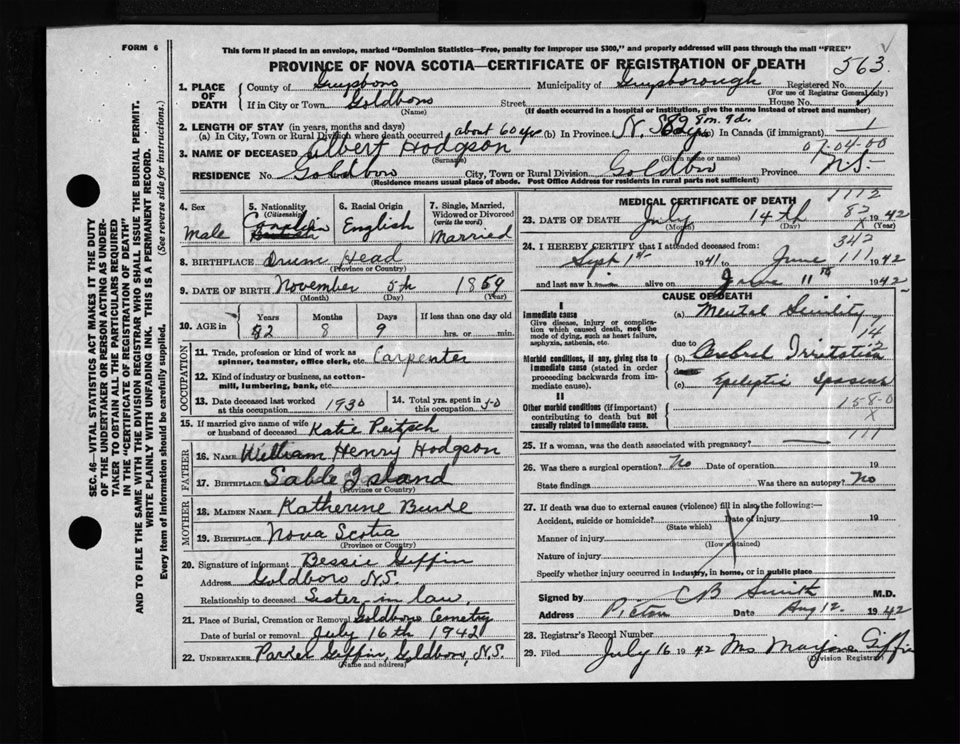 FORM 6
This form if placed in an envelope, marked "Dominion Statistics—Free, penalty for improper use $300," and properly addressed will pass through the mail "FREE"
PROVINCE OF NOVA SCOTIA—CERTIFICATE OF REGISTRATION OF DEATH 563
SEC. 46—VITAL STATISTICS ACT MAKES IT THE DUTY
OF THE UNDERTAKER OR PERSON ACTING AS UNDER-
TAKER TO OBTAIN ALL THE PARTICULARS REQUIRED
IN THE "CERTIFICATE OF REGISTRATION OF DEATH"
AND TO FILE THE SAME WITH THE DIVISION REGISTRAR WHO SHALL ISSUE THE BURIAL PERMIT.
WRITE PLAINLY WITH UNFADING INK. THIS IS A PERMANENT RECORD.
Every item of Information should be carefully supplied. (See reverse side for instructions.)
1. PLACE OF DEATH County of Guysboro Municipality of Guysborough Registered No.
(For use of Registrar General only)
If in City or Town Goldboro Street House No.
(Name) (If death occurred in a hospital or institution, give the name instead of street and number)
2. LENGTH OF STAY (in years, months and days)
(a) In City, Town or Rural Division where death occurred about 60 yrs (b) In Province N.S. 82 yrs 8m. 9d. (c) In Canada (if immigrant)
3. NAME OF DECEASED Albert Hodgson 07-04-00
(Surname) (Given name or names)
RESIDENCE No. Goldboro City, Town or Rural Division Goldboro Province N.S.
(Residence means usual place of abode. Post Office Address for residents in rural parts not sufficient)
4. Sex Male
5. Nationality (Citizenship) Canadian
6. Racial Origin English
7. Single, Married, Widowed or Divorced (write the word) Married
8. BIRTHPLACE Drum Head
(Province or Country)
9. DATE OF BIRTH November 5th 1859
(Month) (Day) (Year)
10. AGE in Years 82 Months 8 Days 9 If less than one day old hrs. or min.
OCCUPATION
11. Trade, profession or kind of work as spinner, teamster, office clerk, etc. Carpenter
12. Kind of industry or business, as cotton-mill, lumbering, bank, etc.
13. Date deceased last worked at this occupation 1930 14. Total yrs. spent in this occupation 50
15. If married give name of wife or husband of deceased Katie Peitsch
FATHER
16. NAME William Henry Hodgson
17. BIRTHPLACE Sable Island
(Province or Country)
MOTHER
18. MAIDEN NAME Katherine Burke
19. BIRTHPLACE Nova Scotia
(Province or Country)
20. Signature of informant Bessie Giffin
Address Goldboro N.S.
Relationship to deceased Sister-in-law
21. Place of Burial, Cremation or Removal Goldboro Cemetery
Date of burial or removal July 16th 1942
22. UNDERTAKER Parker Giffin, Goldboro, N.S.
(Name and address)
MEDICAL CERTIFICATE OF DEATH 1172
23. DATE OF DEATH July 14th 82 1942
(Month) (Day) (Year)
342
24. I HEREBY CERTIFY that I attended deceased from:
Sept 1st 1941 to June 111 1942
and last saw h alive on June 11th 1942
CAUSE OF DEATH
I
Immediate cause
Give disease, injury or complication which caused death, not the mode of dying, such as heart failure, asphyxia, asthenia, etc.
(a) Mental Senility
due to
Morbid conditions, if any, giving rise to immediate cause (stated in order proceeding backwards from immediate cause).
(b) Cerebral Irritation
due to
(c) Epileptic Spasms
II
Other morbid conditions (if important) contributing to death but not causally related to immediate cause.
158-0
X
111
25. If a woman, was the death associated with pregnancy?
26. Was there a surgical operation? No Date of operation 19
State findings Was there an autopsy? No
27. If death was due to external causes (violence) fill in also the following:—
Accident, suicide or homicide? Date of injury 19
(State which)
Manner of injury
(How sustained)
Nature of injury
Specify whether injury occurred in industry, in home, or in public place
Signed by C B Smith M.D.
Address Pictou Date Aug 12. 1942
28. Registrar's Record Number
29. Filed July 16 1942 Mrs Marjorie Giffin
(Division Registrar)